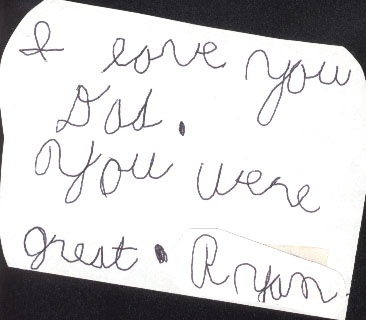 I love you
Dad.
You were
great. Ryan